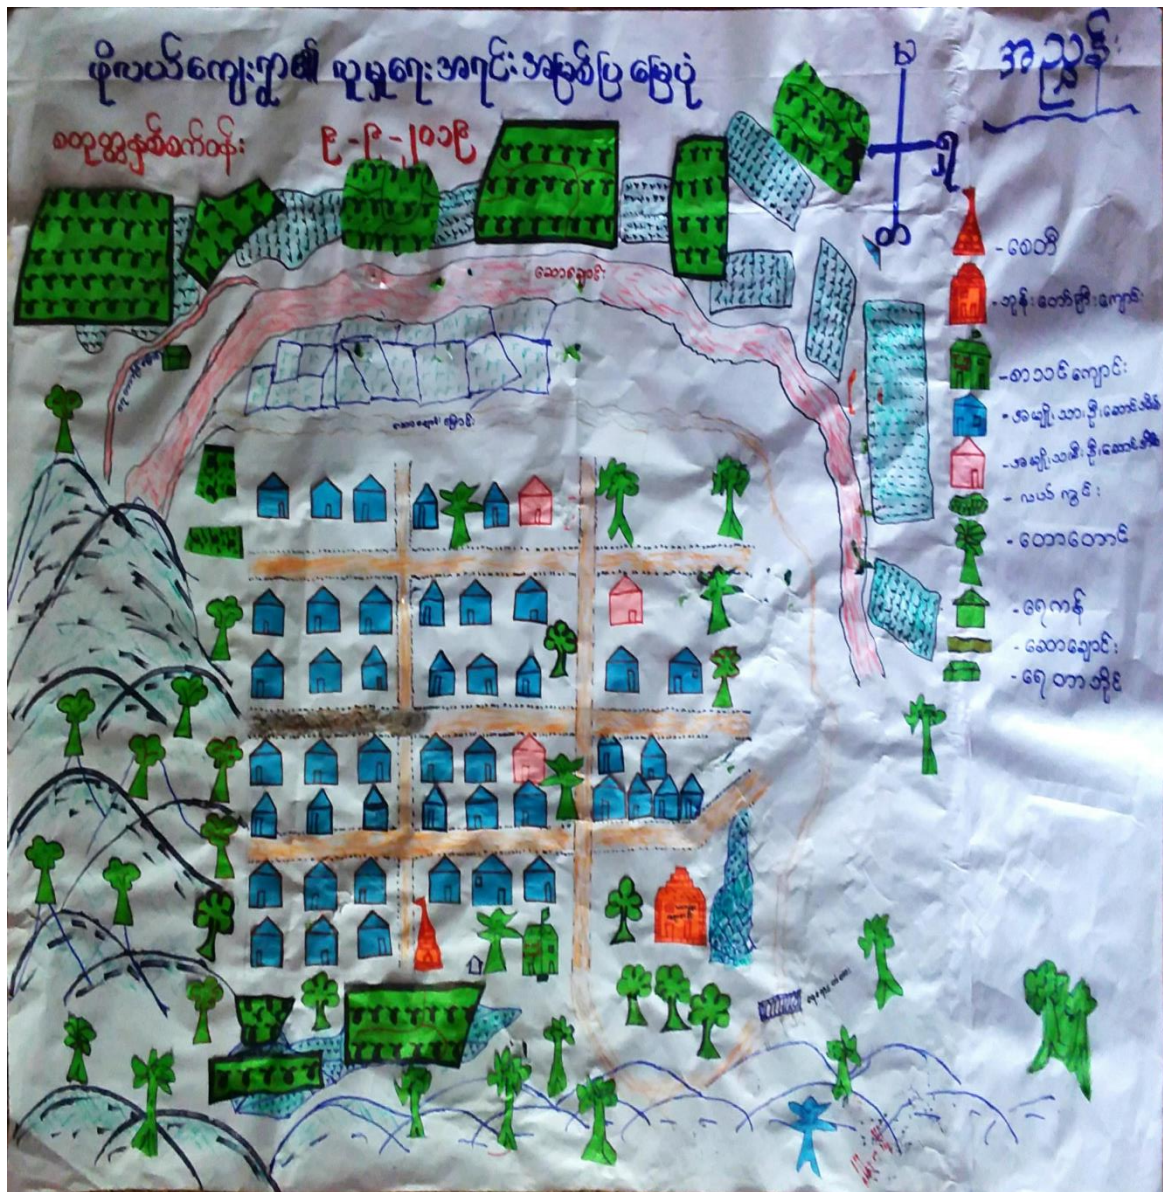 ဖိုလယ်ကျေးရွာ၏ လူမှုရေးအရင်းအမြစ်ပြ မြေပုံ
စတုတ္ထနှစ်စက်ဝန်း ၉-၉-၂၀၁၉
အညွှန်း
မ
ရှ
တ
ဆောချောင်း
- စေတီ
- ဘုန်းတော်ကြီးကျောင်း
- စာသင်ကျောင်း
- အမျိုးသားဦးဆောင်အိမ်
- အမျိုးသမီးဦးဆောင်အိမ်
- လယ်ကွင်း
- တောတောင်
- ရေကန်
- ဆောချောင်း
- ရေတာတိုင်